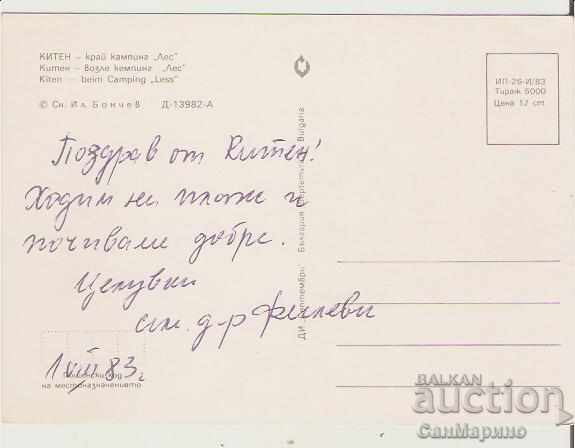 КИТЕН – край кампинг „Лес"
Китен – возле кемпинг „Лес"
Kiten – beim Camping „Less"
© Сн. Ил. Бончев Д-13982-А
ИП-26-И/83
Тираж 5000
Цена 12 ст.
Поздрав от Китен!
Ходим на плаж и
почиваме добре.
Целувки
сем. д-р
1 VIII 83 г.
код
на местоназначението
ДИ „Септември" България Bulgaria
BALKAN
auction
СанМарино